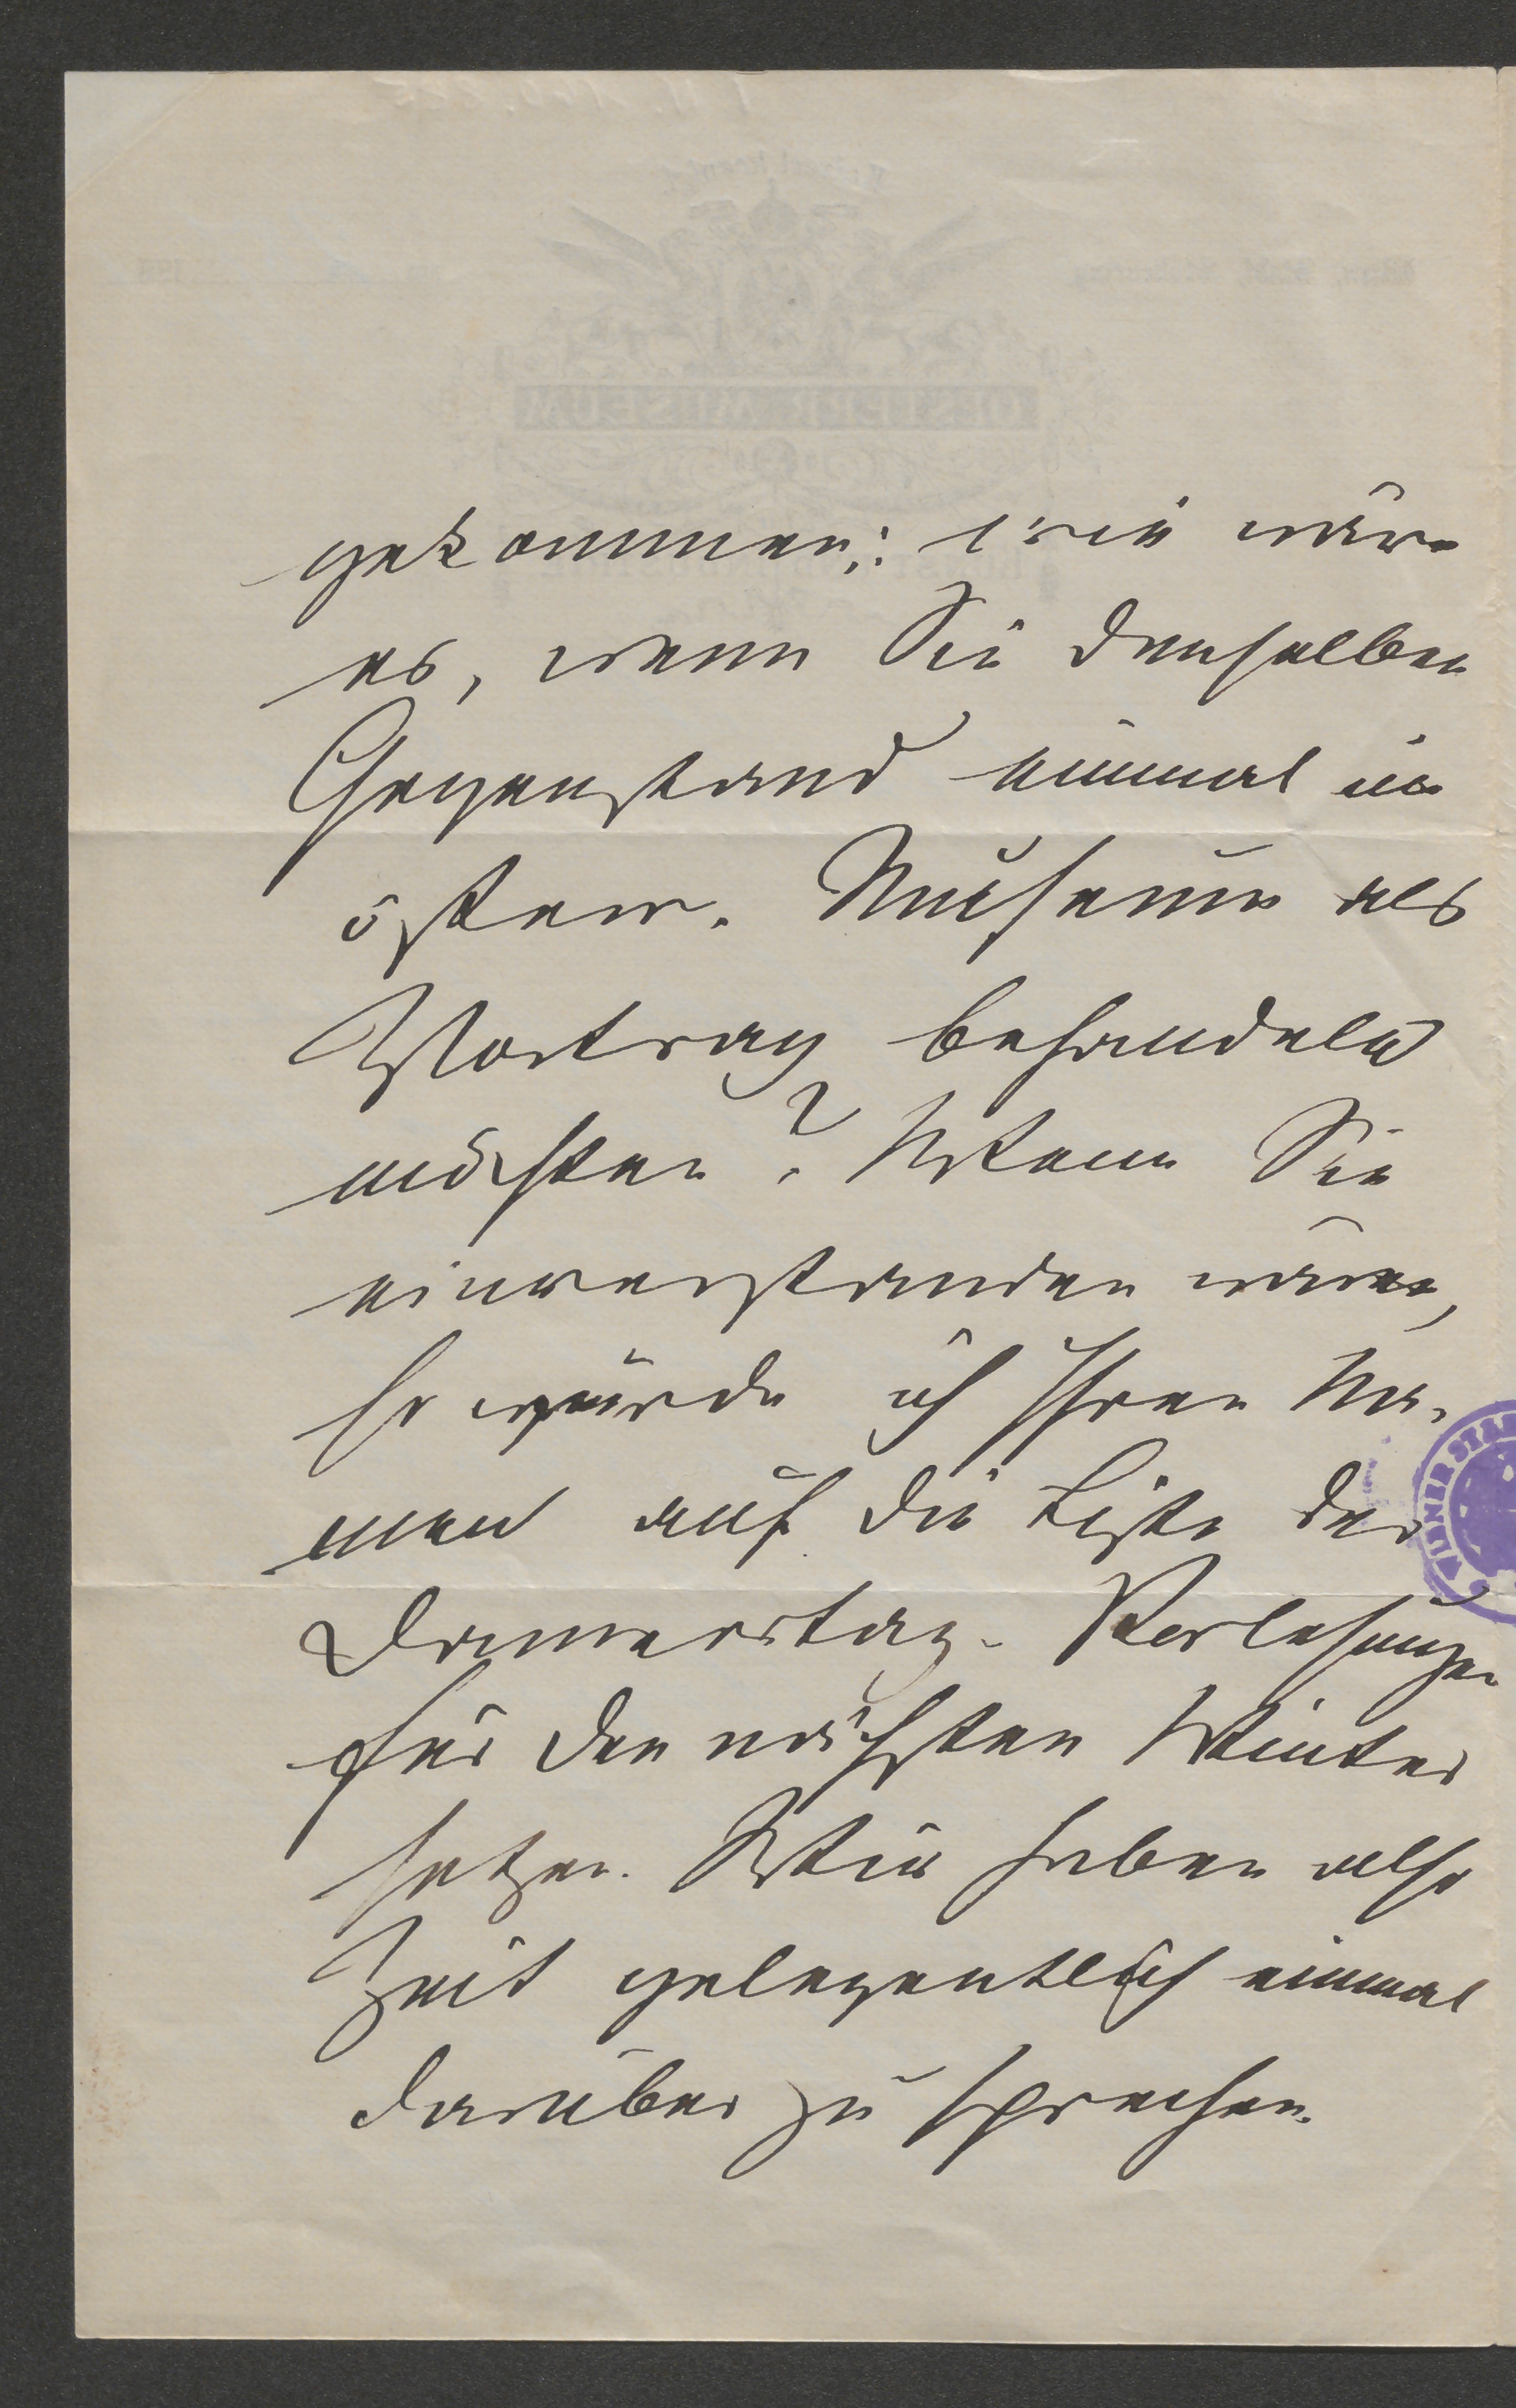 gekommen: wie wäre
es, wenn Sie denselben
Gegenstand einmal im
österr. Museum als
Vortrag behandeln
möchten? Wenn Sie
einverstanden wären,
so würde ich Ihren Na-
men auf die Liste der
Donnerstag-Vorlesungen
für den nächsten Winter
setzen. Wir haben also
Zeit gelegentlich einmal
darüber zu sprechen.
WIENER